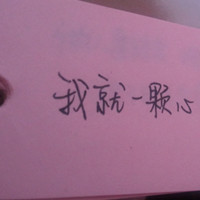 我就一颗心